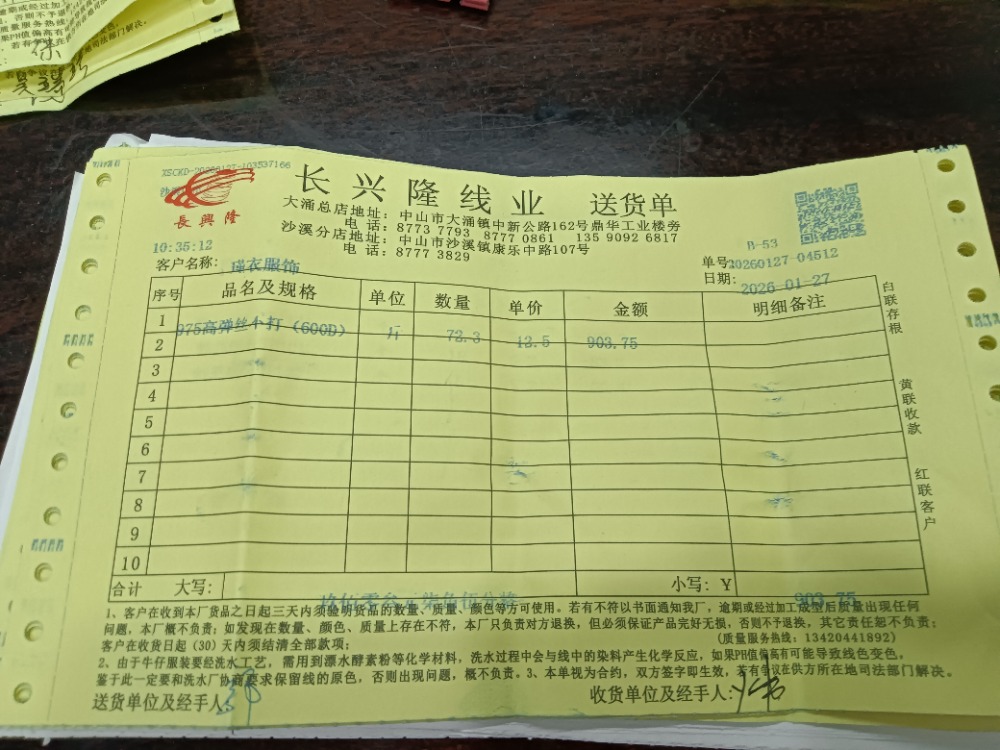 XSCKD-20260127-103537166
长兴隆线业 送货单
長興隆
大涌总店地址：中山市大涌镇中新公路162号鼎华工业楼旁
电话：8773 7793 8777 0861 135 9092 6817
沙溪分店地址：中山市沙溪镇康乐中路107号
电话：8777 3829
10:35:12
B-53
客户名称：瑾衣服饰
单号：20260127-04512
日期：2026-01-27
序号 品名及规格 单位 数量 单价 金额 明细备注
1 975高弹丝小打（600D） 斤 72.3 12.5 903.75
2
3
4
5
6
7
8
9
10
合计 大写： 玖佰零叁元柒角伍分整 小写：Y 903.75
白联存根
黄联收款
红联客户
1、客户在收到本厂货品之日起三天内须验明货品的数量、质量、颜色等方可使用。若有不符以书面通知我厂，逾期或经过加工成型后质量出现任何
问题，本厂概不负责；如发现在数量、颜色、质量上存在不符，本厂只负责对方退换，但必须保证产品完好无损，否则不予退换，其它责任恕不负责；
客户在收货日起（30）天内须结清全部款项；
（质量服务热线：13420441892）
2、由于牛仔服装要经洗水工艺，需用到漂水酵素粉等化学材料，洗水过程中会与线中的染料产生化学反应，如果PH值偏高有可能导致线色变色，
鉴于此一定要和洗水厂协商要求保留线的原色，否则出现问题，概不负责。3、本单视为合约，双方签字即生效，若有争议在供方所在地司法部门解决。
送货单位及经手人：
收货单位及经手人：